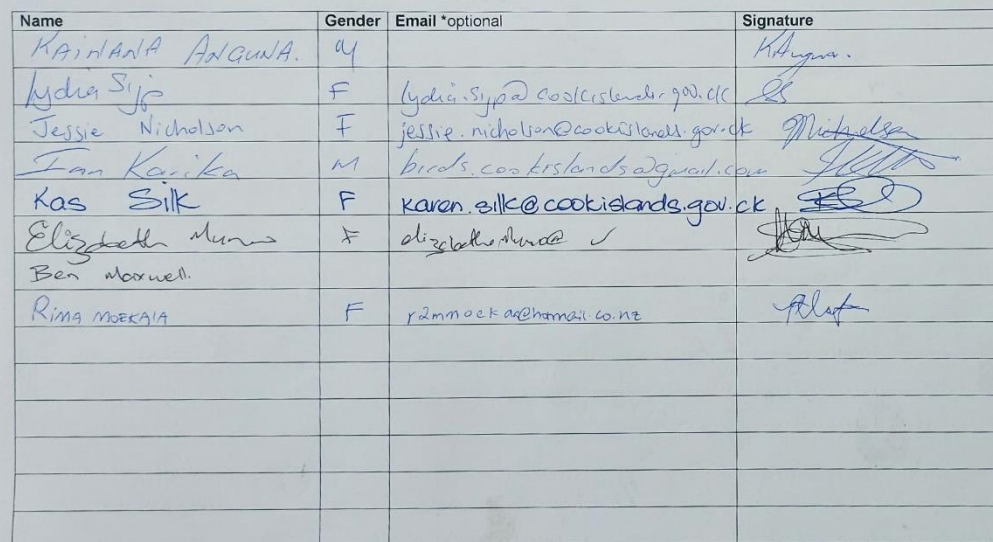 Name Gender Email *optional Signature
KAINANA ANGUNA. M K Anguna.
Lydia Sijp F lydia.sijp@cookislands.gov.ck
Jessie Nicholson F jessie.nicholson@cookislands.gov.ck Nicholson
Ian Karika M birds.cookislands@gmail.com
Kas Silk F karen.silk@cookislands.gov.ck
Elizabeth Munro F elizabeth.munro@ ✓
Ben Maxwell.
RIMA MOEKAIA F